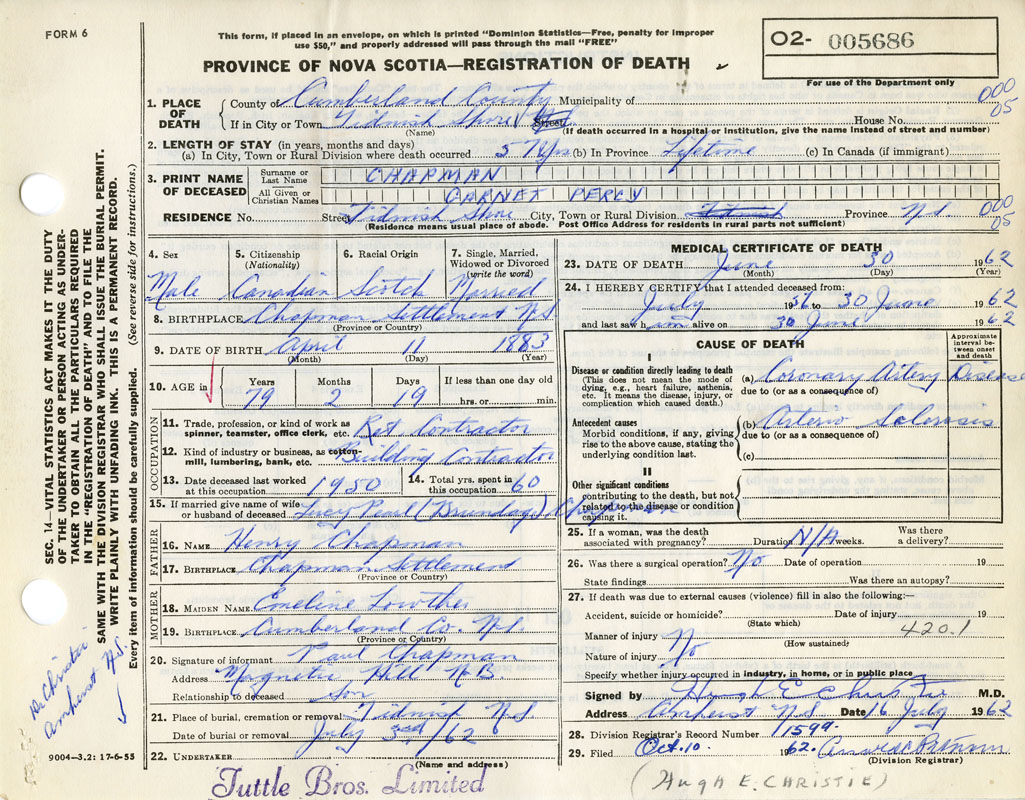 FORM 6
This form, if placed in an envelope, on which is printed "Dominion Statistics—Free, penalty for improper
use $50," and properly addressed will pass through the mail "FREE"
O2- 005686
For use of the Department only
PROVINCE OF NOVA SCOTIA—REGISTRATION OF DEATH
1. PLACE OF DEATH
County of Cumberland County Municipality of
000
05
If in City or Town Tidnish Shore N.S. Street House No.
(Name) (If death occurred in a hospital or institution, give the name instead of street and number)
2. LENGTH OF STAY (in years, months and days)
(a) In City, Town or Rural Division where death occurred 57 yrs (b) In Province Lifetime (c) In Canada (if immigrant)
3. PRINT NAME OF DECEASED
Surname or Last Name CHAPMAN
All Given or Christian Names GARNET PERCY
RESIDENCE No. Street Tidnish Shore City, Town or Rural Division Tidnish Province N.S.
000
05
(Residence means usual place of abode. Post Office Address for residents in rural parts not sufficient)
4. Sex
5. Citizenship (Nationality)
6. Racial Origin
7. Single, Married, Widowed or Divorced (write the word)
Male Canadian Scotch Married
8. BIRTHPLACE Chapman Settlement N.S
(Province or Country)
9. DATE OF BIRTH April 11 1883
(Month) (Day) (Year)
10. AGE in
Years Months Days If less than one day old
79 2 19 hrs. or min.
OCCUPATION
11. Trade, profession, or kind of work as
spinner, teamster, office clerk, etc. Ret Contractor
12. Kind of industry or business, as cotton-
mill, lumbering, bank, etc. Building Contractor
13. Date deceased last worked at this occupation 1950
14. Total yrs. spent in this occupation 60
15. If married give name of wife
or husband of deceased Lucy Pearl (Brundage) Chapman
FATHER
16. NAME Henry Chapman
17. BIRTHPLACE Chapman Settlement
(Province or Country)
MOTHER
18. MAIDEN NAME Emeline Lowther
19. BIRTHPLACE Cumberland Co. N.S.
(Province or Country)
20. Signature of informant Paul Chapman
Address Magnetic Hill N.B
Relationship to deceased son
21. Place of burial, cremation or removal Tidnish N.S.
Date of burial or removal July 3rd/62
22. UNDERTAKER
(Name and address)
Tuttle Bros. Limited
MEDICAL CERTIFICATE OF DEATH
23. DATE OF DEATH June 30 1962
(Month) (Day) (Year)
24. I HEREBY CERTIFY that I attended deceased from:
July 1936 to 30 June 1962
and last saw him alive on 30 June 1962
CAUSE OF DEATH
Approximate interval between onset and death
I
Disease or condition directly leading to death
(This does not mean the mode of
dying, e.g., heart failure, asthenia,
etc. It means the disease, injury, or
complication which caused death.)
(a) Coronary Artery Disease
due to (or as a consequence of)
Antecedent causes
Morbid conditions, if any, giving
rise to the above cause, stating the
underlying condition last.
(b) Arterio Sclerosis
due to (or as a consequence of)
(c)
II
Other significant conditions
contributing to the death, but not
related to the disease or condition
causing it.
25. If a woman, was the death
associated with pregnancy? Duration N/A weeks. Was there a delivery?
26. Was there a surgical operation? No Date of operation 19
State findings Was there an autopsy?
27. If death was due to external causes (violence) fill in also the following:—
Accident, suicide or homicide? Date of injury 19
(State which)
420.1
Manner of injury No
(How sustained)
Nature of injury
Specify whether injury occurred in industry, in home, or in public place
Signed by Hugh E Christie M.D.
Address Amherst N S Date 16 July 1962
28. Division Registrar's Record Number 1599
29. Filed Oct. 10. 1962.
(Division Registrar)
(HUGH E. CHRISTIE)
SEC. 14—VITAL STATISTICS ACT MAKES IT THE DUTY
OF THE UNDERTAKER OR PERSON ACTING AS UNDER-
TAKER TO OBTAIN ALL THE PARTICULARS REQUIRED
IN THE "REGISTRATION OF DEATH" AND TO FILE THE
SAME WITH THE DIVISION REGISTRAR WHO SHALL ISSUE THE BURIAL PERMIT.
WRITE PLAINLY WITH UNFADING INK. THIS IS A PERMANENT RECORD.
Every item of information should be carefully supplied. (See reverse side for instructions.)
Dr Christie
Amherst N.S.
9004—3.2: 17-6-55